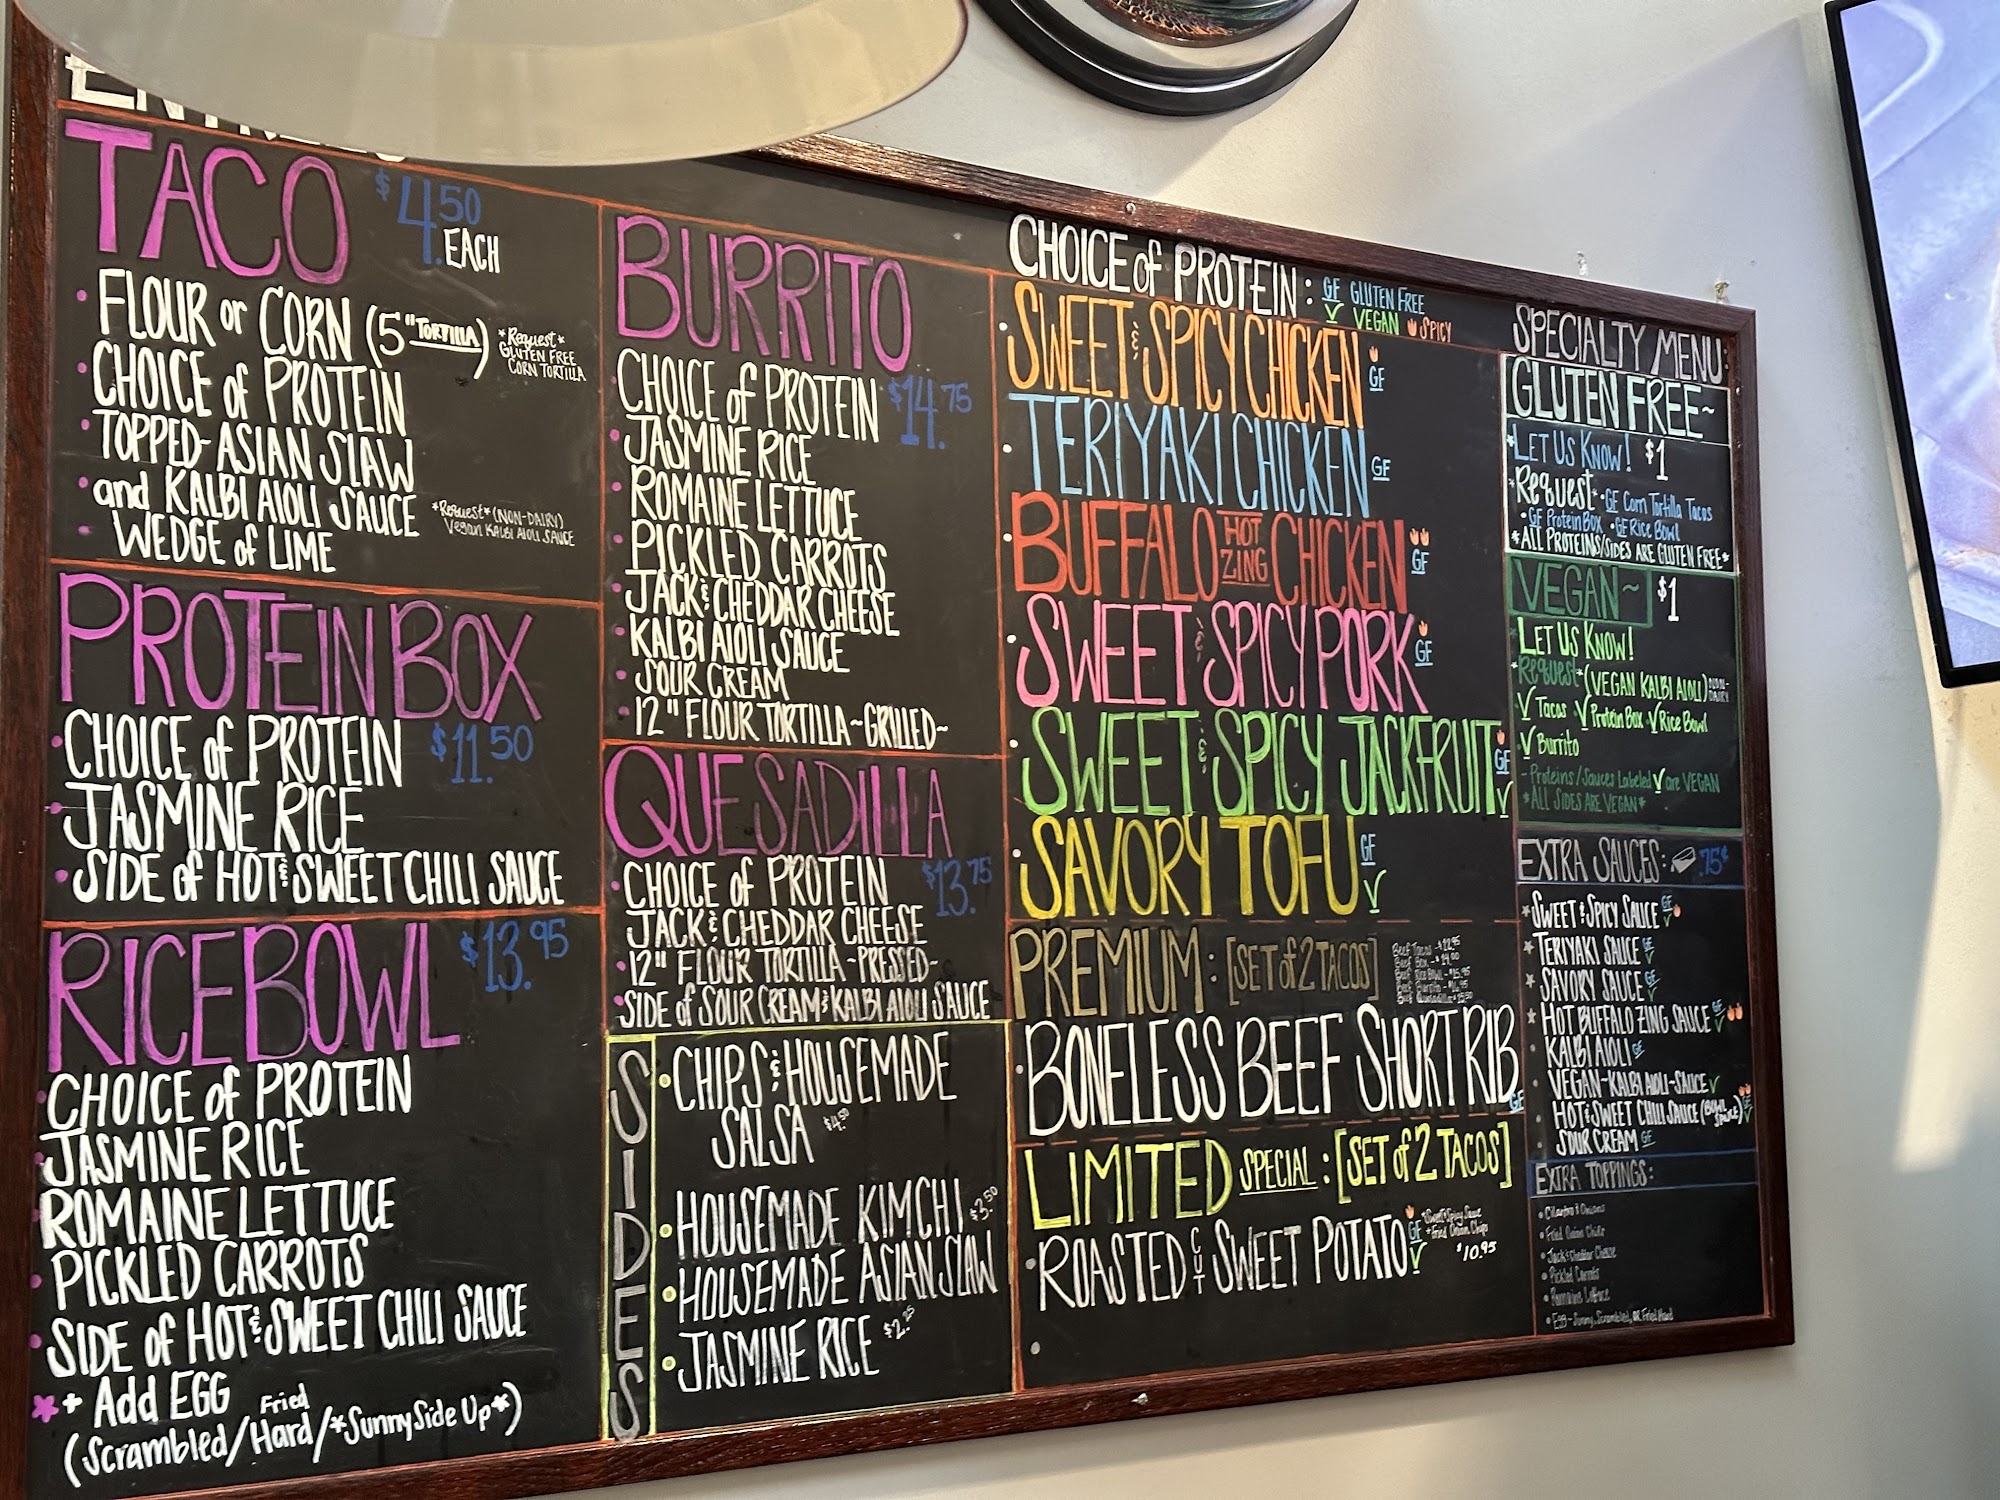 TACO $4.50 EACH
• FLOUR or CORN (5" TORTILLA) *Request* GLUTEN FREE CORN TORTILLA
• CHOICE of PROTEIN
• TOPPED-ASIAN SLAW
• and KALBI AIOLI SAUCE *Request* (NON-DAIRY) Vegan KALBI AIOLI SAUCE
• WEDGE of LIME
PROTEIN BOX $11.50
• CHOICE of PROTEIN
• JASMINE RICE
• SIDE of HOT & SWEET CHILI SAUCE
RICE BOWL $13.95
• CHOICE of PROTEIN
• JASMINE RICE
• ROMAINE LETTUCE
• PICKLED CARROTS
• SIDE of HOT & SWEET CHILI SAUCE
* + Add EGG
(Scrambled/Fried Hard/*Sunny Side Up*)
BURRITO
• CHOICE of PROTEIN $14.75
• JASMINE RICE
• ROMAINE LETTUCE
• PICKLED CARROTS
• JACK & CHEDDAR CHEESE
• KALBI AIOLI SAUCE
• SOUR CREAM
• 12" FLOUR TORTILLA ~GRILLED~
QUESADILLA
• CHOICE of PROTEIN $13.75
• JACK & CHEDDAR CHEESE
• 12" FLOUR TORTILLA ~PRESSED~
• SIDE of SOUR CREAM & KALBI AIOLI SAUCE
SIDES
• CHIPS & HOUSEMADE
SALSA $4.50
• HOUSEMADE KIMCHI $3.50
• HOUSEMADE ASIAN SLAW
• JASMINE RICE $2.25
CHOICE of PROTEIN: GF GLUTEN FREE
V VEGAN SPICY
• SWEET & SPICY CHICKEN GF
• TERIYAKI CHICKEN GF
• BUFFALO HOT ZING CHICKEN GF
• SWEET & SPICY PORK GF
• SWEET & SPICY JACKFRUIT GF V
• SAVORY TOFU GF V
PREMIUM: [SET of 2 TACOS]
• BONELESS BEEF SHORT RIB GF
LIMITED SPECIAL: [SET of 2 TACOS]
• ROASTED CUT SWEET POTATO GF V *Sweet & Spicy Sauce
*Fried Onion Chips
$10.95
SPECIALTY MENU:
GLUTEN FREE~
*LET US KNOW! $1
*Request* • GF Corn Tortilla Tacos
• GF Protein Box • GF Rice Bowl
*ALL PROTEINS/SIDES ARE GLUTEN FREE*
VEGAN~ $1
*LET US KNOW!
*Request* (VEGAN KALBI AIOLI) NON-DAIRY
V Tacos • V Protein Box • V Rice Bowl
• V Burrito
- Proteins/Sauces Labeled V are VEGAN
*ALL SIDES ARE VEGAN*
EXTRA SAUCES: .75¢
* SWEET & SPICY SAUCE GF V
* TERIYAKI SAUCE GF V
* SAVORY SAUCE GF V
* HOT BUFFALO ZING SAUCE GF V
• KALBI AIOLI GF
• VEGAN~KALBI AIOLI~SAUCE V
• HOT & SWEET CHILI SAUCE (BOWL SAUCE) GF V
• SOUR CREAM GF
EXTRA TOPPINGS:
• Cilantro & Onions
• Fried Onion Chips
• Jack & Cheddar Cheese
• Pickled Carrots
• Romaine Lettuce
• Egg - Sunny, Scrambled, OR Fried Hard